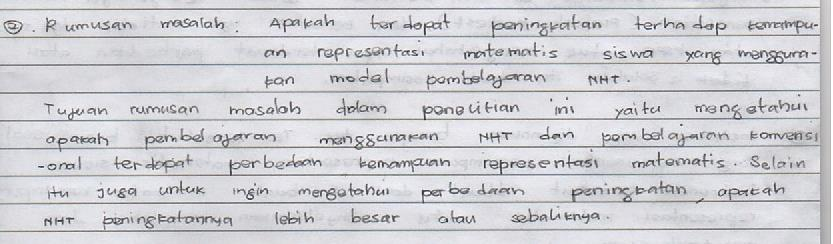 ②. Rumusan masalah : Apakah terdapat peningkatan terhadap kemampu-
an representasi matematis siswa yang mengguna-
kan model pembelajaran NHT.
Tujuan rumusan masalah dalam penelitian ini yaitu mengetahui
apakah pembelajaran menggunakan NHT dan pembelajaran konvensi
-onal terdapat perbedaan kemampuan representasi matematis. Selain
itu juga untuk ingin mengetahui perbedaan peningkatan, apakah
NHT peningkatannya lebih besar atau sebaliknya.